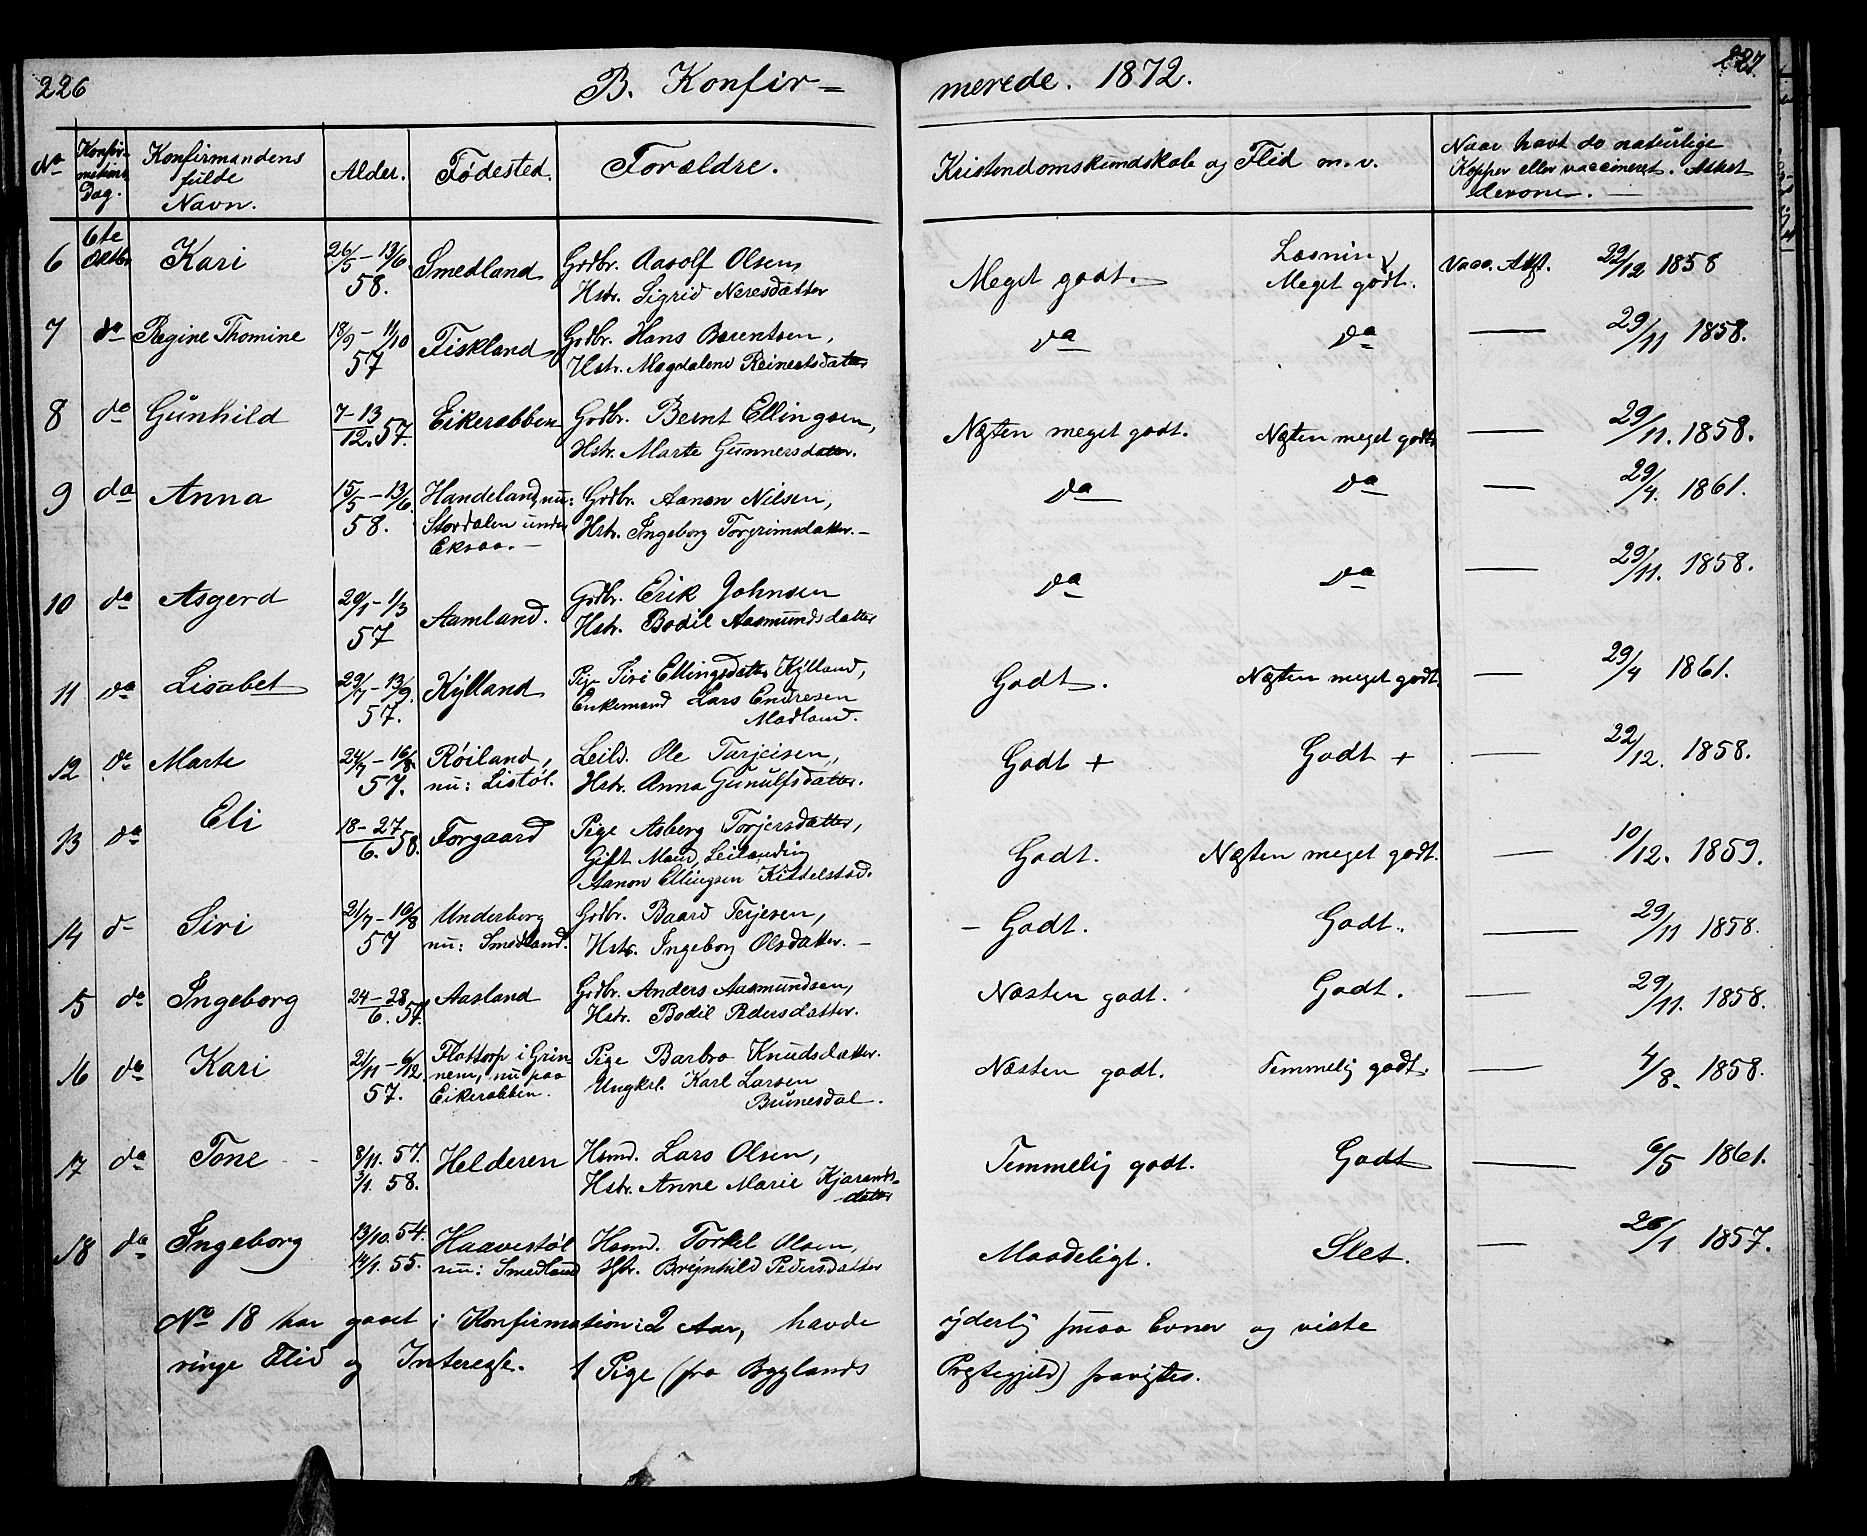 226
B. Konfir=
merede. 1872.
227
No
Konfir-
mations
Dag.
Konfirmandens
fulde
Navn.
Alder.
Fødested.
Forældre.
Kristendomskundskab og Flid m. v.
Naar havt de naturlige
Kopper eller vaccineret. Attest
derom.
6 6te Oktbr. Kari 26/5 – 13/6 58. Smedland Grdbr. Aasolf Olsen, Meget godt. Læsning Meget godt. Vacc. Att. 22/12 1858
Hstr. Sigrid Neresdatter
7 do Regine Thomine 18/9 – 11/10 57 Fiskland Grdbr. Hans Berentsen, do do — 29/11 1858.
Hstr. Magdalene Reinertsdatter
8 do Gunhild 7–13/12. 57. Eikerabben Grdbr. Bernt Ellingsen, Næsten meget godt. Næsten meget godt — 29/11. 1858.
Hstr. Marte Gunnersdatter.
9 do Anna 15/5 – 13/6 58. Handeland, nu: Grdbr. Aanon Nilsen, do do — 29/4. 1861.
Stordalen under Hstr. Ingeborg Torgrimsdatter. –
Eksaa. –
10 do Asgerd 29/1 – 1/3 57 Aamland. Grdbr. Erik Johnsen do do — 29/11. 1858.
Hstr. Bodil Aasmundsdatter
11 do Lisabet 29/7 – 13/9. 57. Kylland Pige Siri Ellingsdatter Kylland, Godt. Næsten meget godt. — 29/4 1861.
Enkemand Lars Endresen
Madland.
12 do Marte 24/7 – 16/8. 57. Røiland, Leild. Ole Tarjeisen, Godt + Godt + — 22/12. 1858.
nu: Listøl. Hstr. Anna Gunulfsdatter.
13 do Eli 18–27/6. 58. Forgaard Pige Asberg Torjersdatter, Godt. Næsten meget godt. — 10/12. 1859.
Gift Mand, Leilending
Aanon Ellingsen Kittelstad.
14 d– Siri 21/7 – 16/8 57 Underberg Grdbr. Baard Terjesen, – Godt. Godt. — 29/11 1858.
nu: Smedland. Hstr. Ingeborg Olsdatter. –
15 do Ingeborg 24–28/6. 57. Aasland Grdbr. Anders Aasmundsen, Næsten godt. Godt. — 29/11. 1858.
Hstr. Bodil Pedersdatter.
16 do Kari 21/11 – 6/12 57. Flottorp i Grin- Pige Barbro Knudsdatter. Næsten godt. Temmelig godt. — 4/8. 1858.
nem, nu paa Ungkrl. Karl Larsen
Eikerabben. Brunesdal.
17 do Tone 8/11. 57. 3/1. 58. Helderen Hsmd. Lars Olsen, Temmelig godt. Godt — 6/5 1861.
Hstr. Anne Marie Kjarands-
datter
18 do Ingeborg 13/10. 54. 14/1. 55. Haavestøl Hsmd. Torkel Olsen, Maadeligt. Slet. — 26/1 1857.
nu: Smedland Hstr. Brynhild Pedersdatter
No 18 har gaaet i Konfirmation: 2 Aar, havde yderlig smaa Evner og viste
ringe Flid og Interesse. 1 Pige (fra Byglands Præstegjeld) fravigtes.